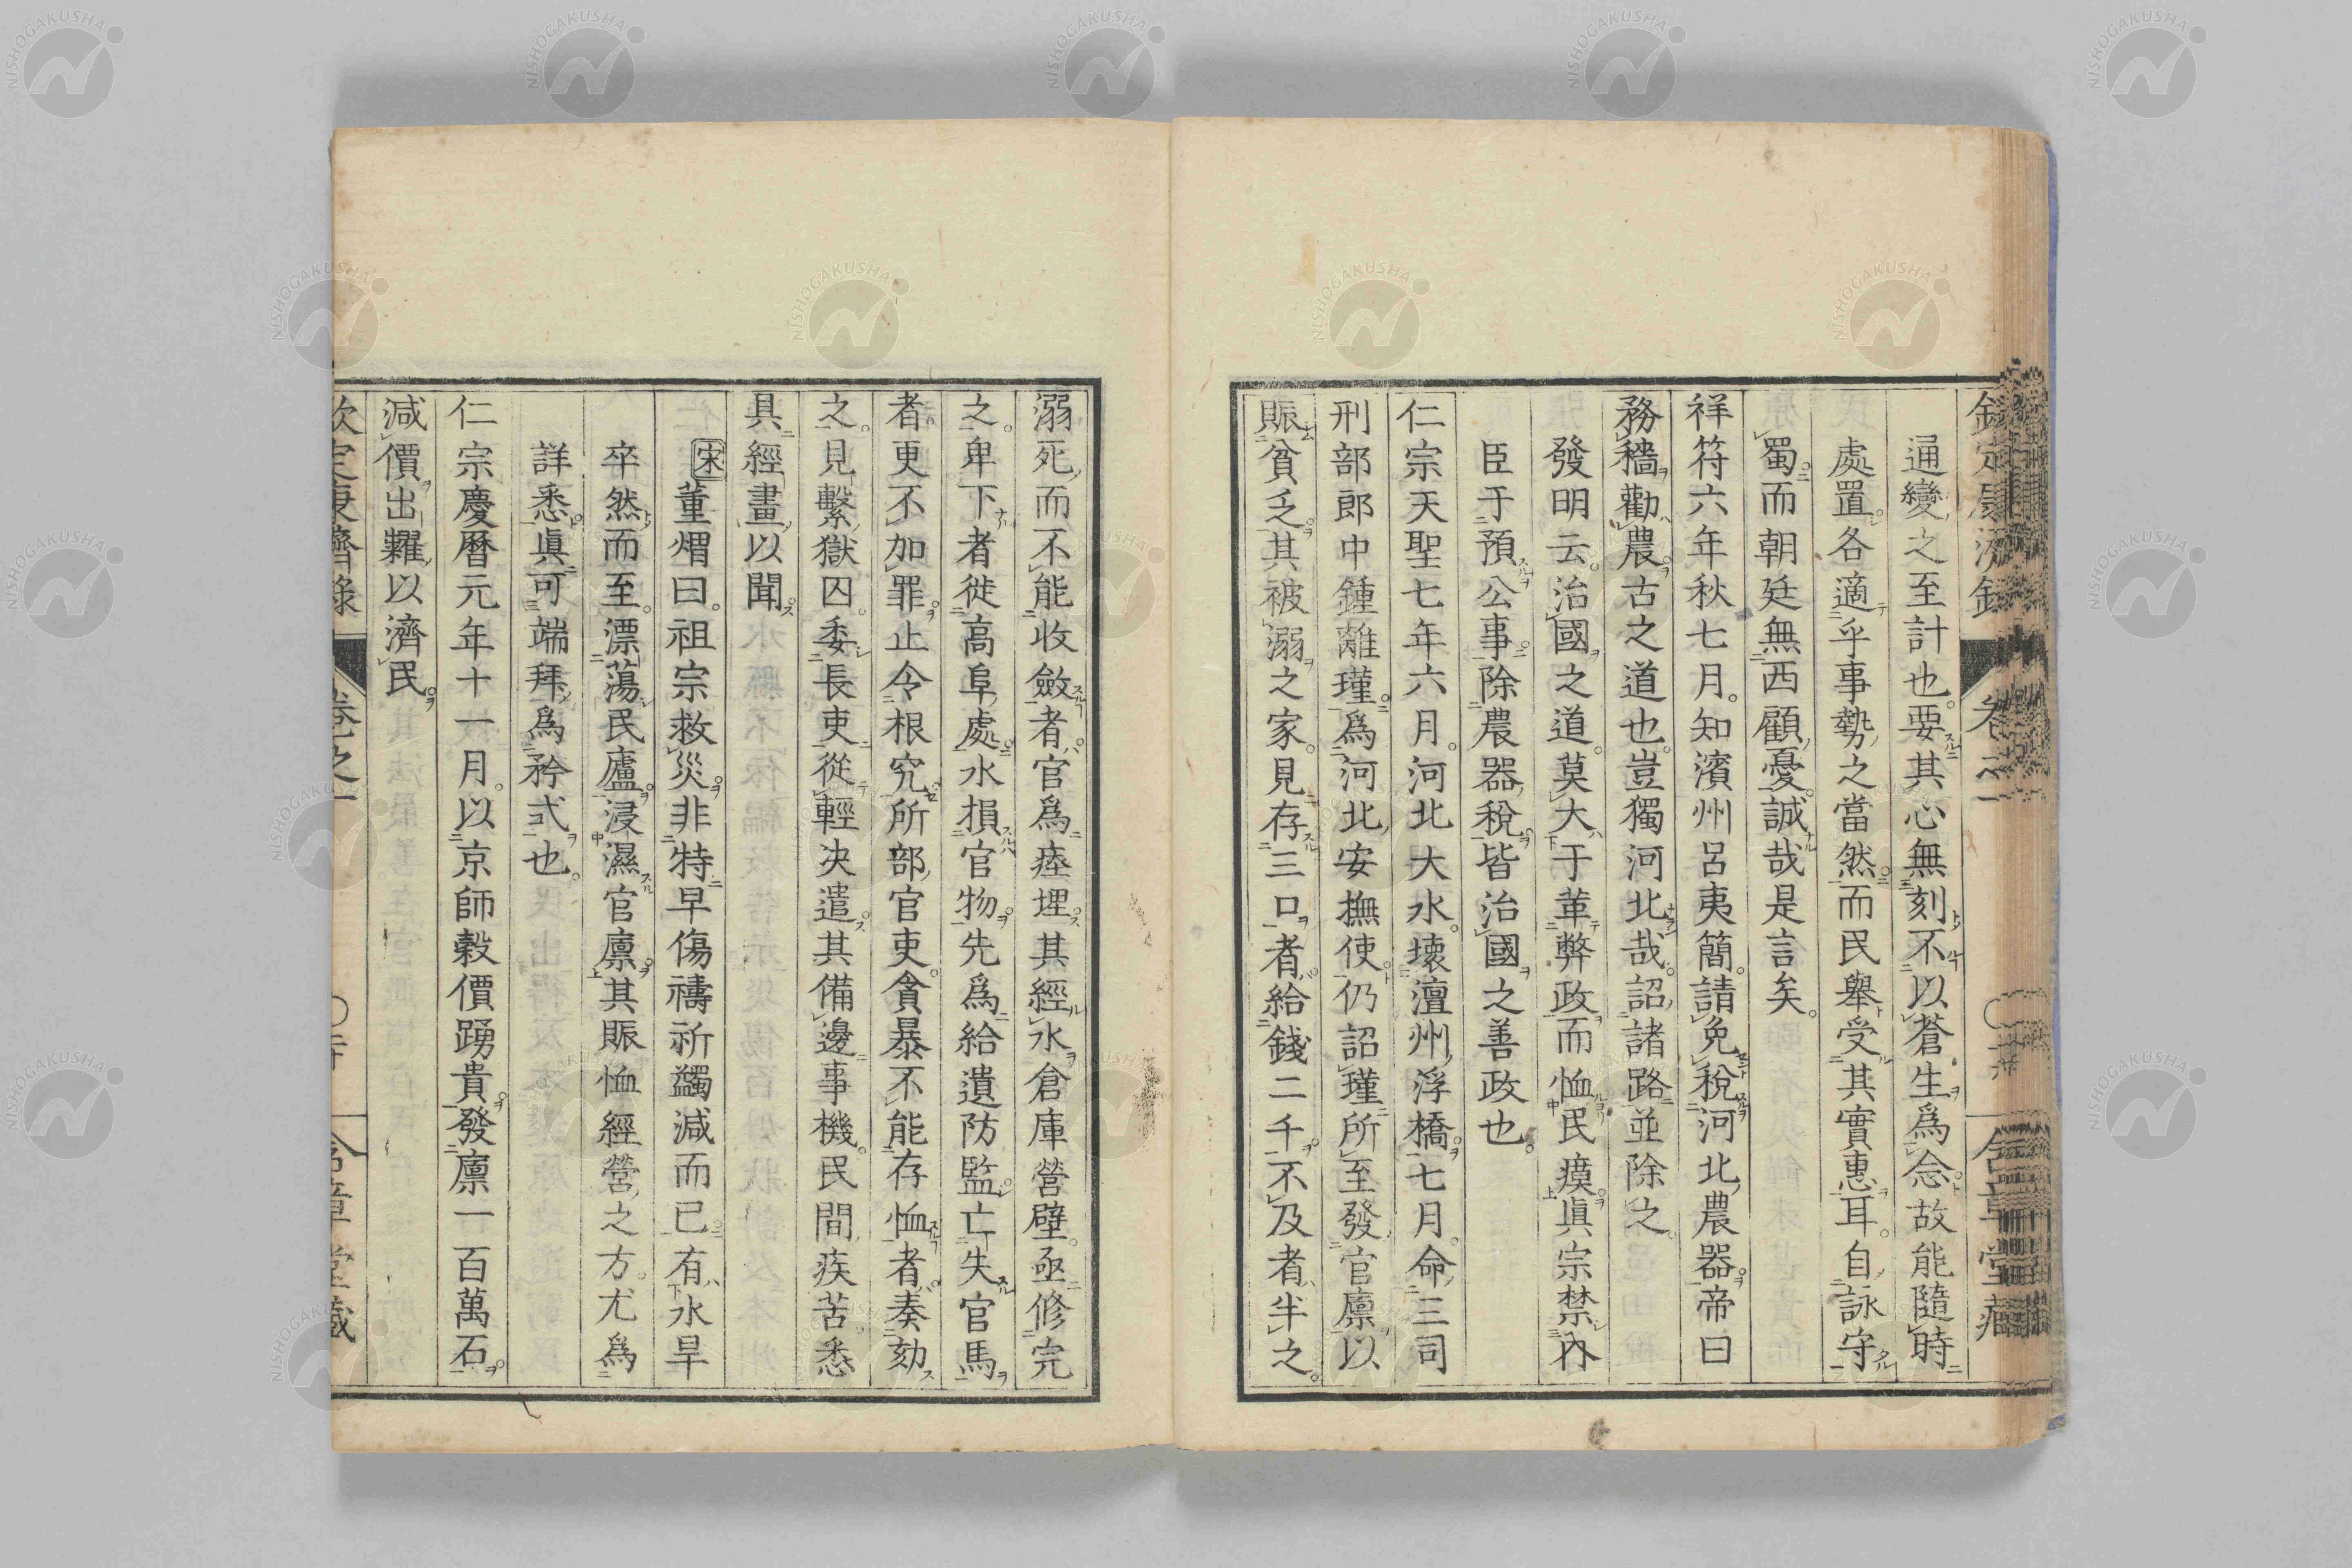 通變之至計也。要其心無刻不以蒼生爲念故能隨時
處置各適乎事勢之當然而民舉受其實惠耳。自詠守
蜀而朝廷無西顧憂。誠哉是言矣。
祥符六年秋七月。知濱州呂夷簡。請免稅河北農器帝曰
務穡勸農。古之道也。豈獨河北哉。詔諸路並除之。
發明云。治國之道。莫大于革弊政而恤民瘼眞宗禁內
臣于預公事。除農器稅。皆治國之善政也。
仁宗天聖七年六月。河北大水。壞澶州浮橋。七月。命三司
刑部郎中鍾離瑾。爲河北安撫使。仍詔瑾所至發官廪以
賑貧乏。其被溺之家。見存三口者給錢二千。不及者半之。
溺死而不能收斂者。官爲瘞埋。其經水倉庫營壁。亟修完
之。卑下者徙高阜處。水損官物。先爲給遺防監。亡失官馬
者更不加罪。止令根究所部官吏。貪暴不能存恤者。奏劾
之。見繫獄囚。委長吏從輕决遣。其備邊事機。民間疾苦悉
具經畫以聞。
宋董煟曰。祖宗救災。非特早傷禱祈蠲減而已。有水旱
卒然而至。漂蕩民廬。浸濕官廪。其賑恤經營之方。尤爲
詳悉。眞可端拜爲矜式也。
仁宗慶曆元年十一月。以京師穀價踴貴。發廪一百萬石。
減價出糶以濟民。